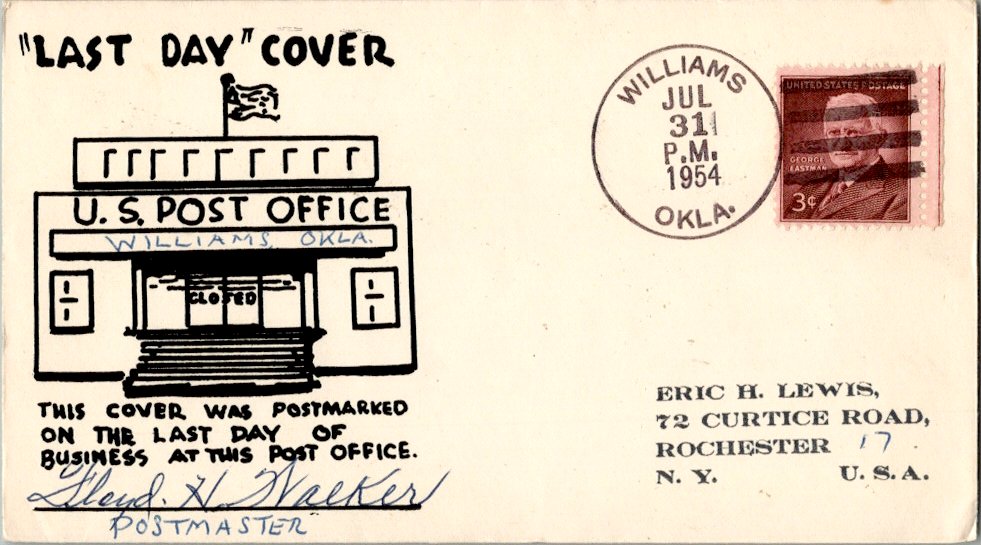 "LAST DAY" COVER
U. S. POST OFFICE
WILLIAMS, OKLA.
CLOSED
THIS COVER WAS POSTMARKED
ON THE LAST DAY OF
BUSINESS AT THIS POST OFFICE.
Floyd. H Walker
POSTMASTER
WILLIAMS
JUL
31
P.M.
1954
OKLA.
UNITED STATES POSTAGE
GEORGE
EASTMAN
3¢
ERIC H. LEWIS,
72 CURTICE ROAD,
ROCHESTER 17
N. Y. U. S. A.